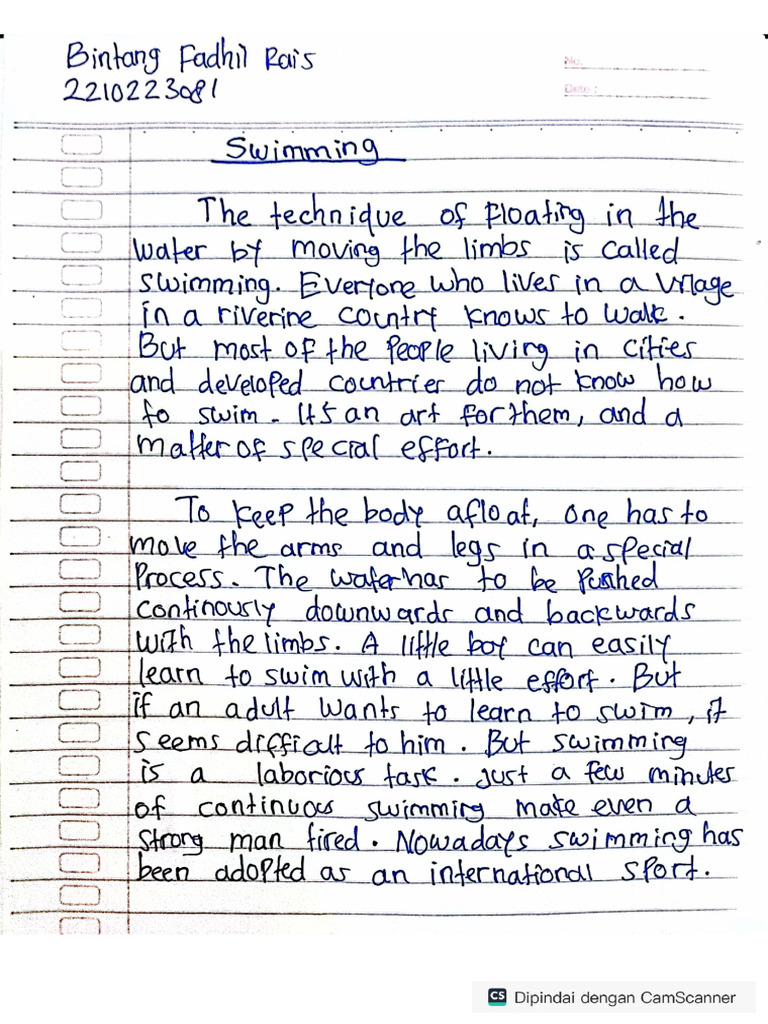 Bintang Fadhil Rais
No.
2210223081
Date :
Swimming
The technique of floating in the
water by moving the limbs is called
swimming. Everyone who lives in a village
in a riverine country knows to walk.
But most of the people living in cities
and developed countrier do not know how
to swim. It's an art for them, and a
matter of special effort.
To keep the body afloat, one has to
move the arms and legs in a special
process. The water has to be pushed
continously downwards and backwards
with the limbs. A little boy can easily
learn to swim with a little effort. But
if an adult wants to learn to swim, it
seems difficult to him. But swimming
is a laborious task. Just a few minutes
of continuous swimming make even a
strong man tired. Nowadays swimming has
been adopted as an international sport.
CS Dipindai dengan CamScanner